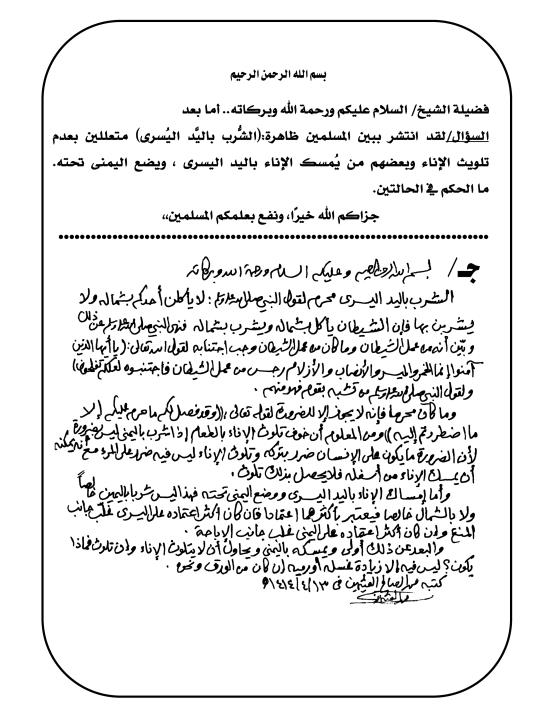 بسم الله الرحمن الرحيم
فضيلة الشيخ/ السلام عليكم ورحمة الله وبركاته.. أما بعد
السؤال/لقد انتشر بببن المسلمين ظاهرة:(الشُّرب باليَّد اليُسرى) متعللين بعدم
تلويث الإناء وبعضهم من يُمسك الإناء باليد اليسرى ، ويضع اليمنى تحته.
ما الحكم في الحالتين.
جزاكم الله خيرًا، ونفع بعلمكم المسلمين،،
جـ/ بسم الله الرحمن الرحيم وعليكم السلام ورحمة الله وبركاته
الشرب باليد اليسرى محرم لقول النبي صلى الله عليه وسلم : لا يأكلن أحدكم بشماله ولا
يشربن بها فإن الشيطان يأكل بشماله ويشرب بشماله فنهى النبي صلى الله عليه وسلم عن ذلك
وبيّن أنه من عمل الشيطان وما كان من عمل الشيطان وجب اجتنابه لقول الله تعالى:(يا أيها الذين
آمنوا إنما الخمر والميسر والأنصاب والأزلام رجس من عمل الشيطان فاجتنبوه لعلكم تفلحون)
ولقول النبي صلى الله عليه وسلم من تشبه بقوم فهو منهم .
وما كان محرما فإنه لا يجوز إلا للضرورة لقوله تعالى :((وقد فصل لكم ما حرم عليكم إلا
ما اضطررتم إليه)) ومن المعلوم أن خوف تلوث الإناء بالطعام إذا شرب باليمنى ليس ضرورة
لأن الضرورة ما يكون على الإنسان ضرر بتركه وتلوث الإناء ليس فيه ضرر على المرء مع أنه يمكنه
أن يمسك الإناء من أسفله فلا يحصل بذلك تلوث .
وأما إمساك الإناء باليد اليسرى ووضع اليمنى تحته فهذا ليس شربا باليمين خالصاً
ولا بالشمال خالصا فيعتبر بأكثرهما اعتمادا فإن كان أكثر اعتماده على اليسرى غلب جانب
المنع وإن كان أكثر اعتماده على اليمنى غلب جانب الإباحة .
والبعد عن ذلك أولى ويمسكه باليمنى ويحاول أن لا يتلوث الإناء وإن تلوث فماذا
يكون؟ ليس فيه إلا زيادة غسله أو رميه إن كان من الورق ونحوه .
كتبه محمد الصالح العثيمين في